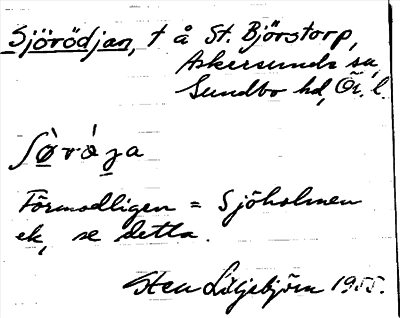 Sjörödjan, t å St. Björstorp,
Askersunds sn,
Sundbo hd, Ör. l.
Förmodligen = Sjöholmen
ek, se detta.
Sten Liljebjörn 1955.